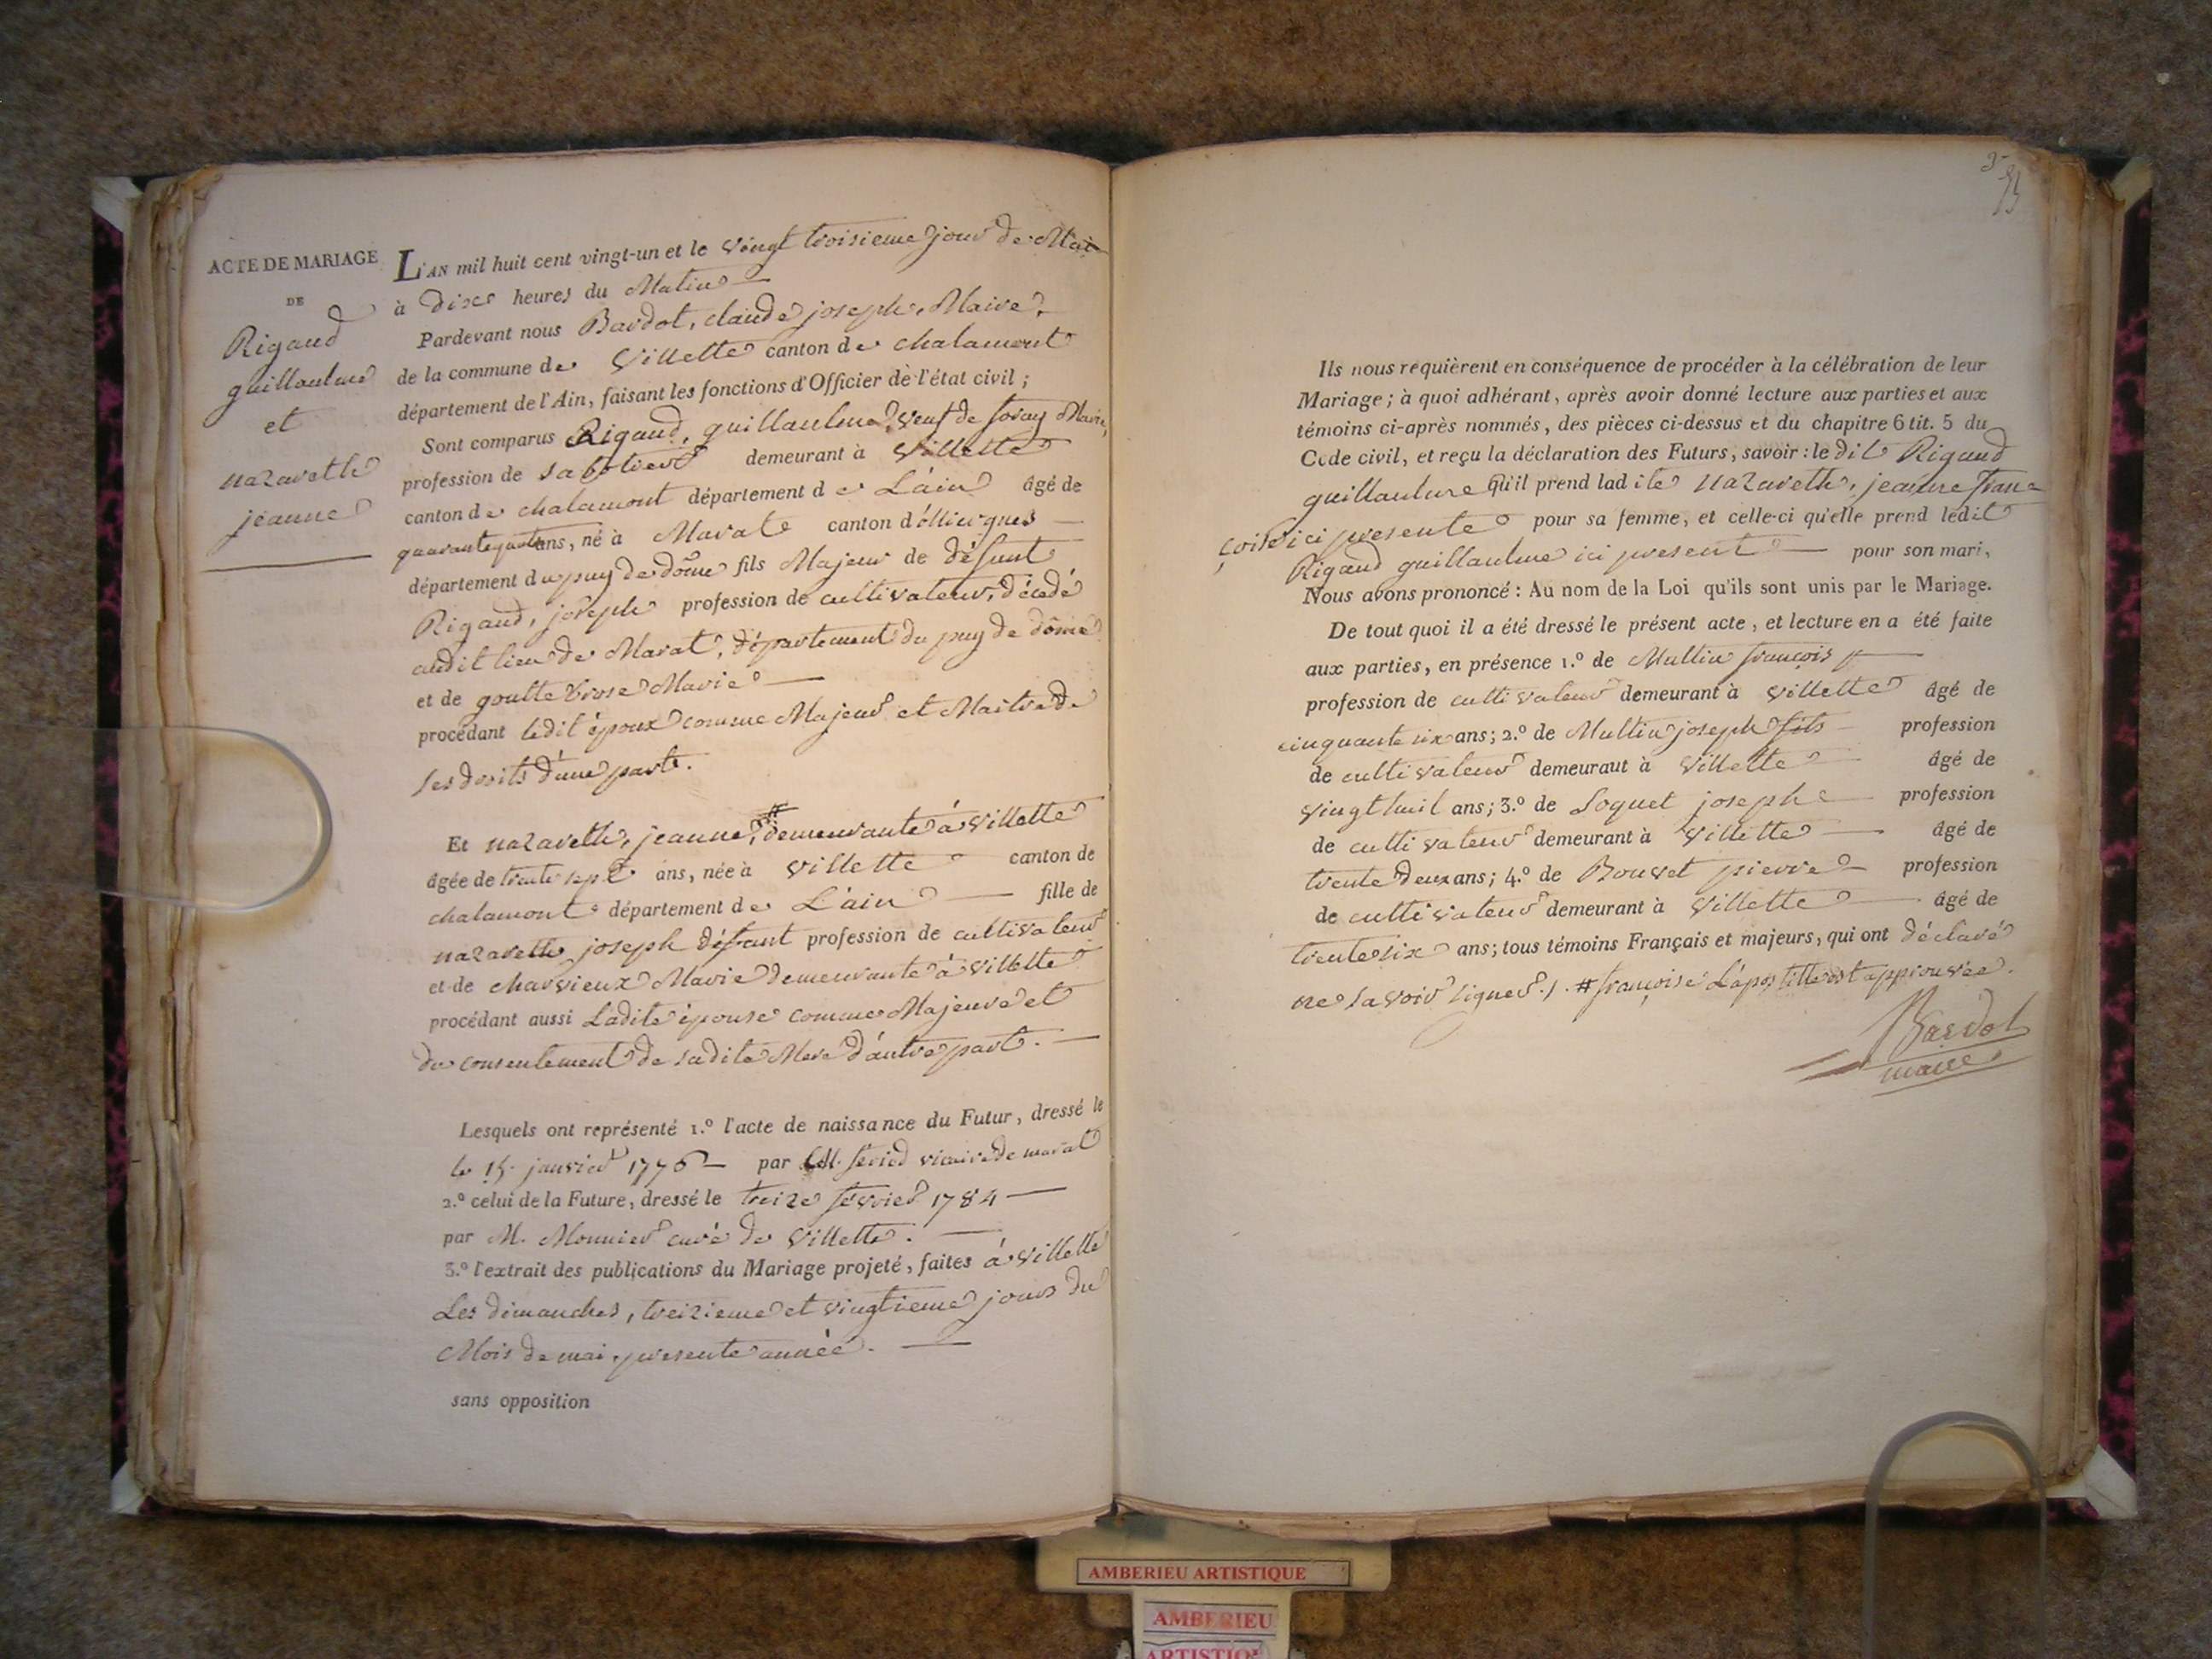 ACTE DE MARIAGE
DE
Rigaud
guillaulme
et
nazareth
jeanne
L'AN mil huit cent vingt-un et le vingt troisieme jour de Mai
à dix heures du Matin
Pardevant nous Bardot, claude joseph, Maire,
de la commune de Villette canton de chalamont
département de l'Ain, faisant les fonctions d'Officier de l'état civil ;
Sont comparus Rigaud, guillaulme, veuf de Marie,
profession de sabotier demeurant à Villette
canton de chalamont département de L'ain âgé de
ans, né à Marat canton d'
département du puy de dôme fils Majeur de défunt
Rigaud, joseph profession de cultivateur, décédé
audit lieu de Marat, département du puy de dôme
et de gouttebrose Marie
procédant ledit époux comme Majeur et Maitre de
ses droits d'une part.
Et nazareth, jeanne, # demeurante à Villette
âgée de trente sept ans, née à Villette canton de
chalamont département de L'ain fille de
nazareth joseph défunt profession de cultivateur
et de charvieux Marie demeurante à Villette
procédant aussi Ladite épouse comme Majeure et
du consentement de sadite Mere d'autre part.
Lesquels ont représenté 1.º l'acte de naissance du Futur, dressé le
le 15. janvier 1776 par M. vicaire de marat
2.º celui de la Future, dressé le treize février 1784
par M. Monnier curé de Villette.
3.º l'extrait des publications du Mariage projeté, faites à Villette
Les dimanches, treizieme et vingtieme jours du
Mois de mai, presente année.
sans opposition
Ils nous requièrent en conséquence de procéder à la célébration de leur
Mariage ; à quoi adhérant, après avoir donné lecture aux parties et aux
témoins ci-après nommés, des pièces ci-dessus et du chapitre 6 tit. 5 du
Code civil, et reçu la déclaration des Futurs, savoir : le dit Rigaud
guillaulme qu'il prend ladite nazareth, jeanne fran
çoise ici presente pour sa femme, et celle-ci qu'elle prend ledit
Rigaud guillaulme ici present pour son mari,
Nous avons prononcé : Au nom de la Loi qu'ils sont unis par le Mariage.
De tout quoi il a été dressé le présent acte, et lecture en a été faite
aux parties, en présence 1.º de Multin françois
profession de cultivateur demeurant à Villette âgé de
cinquante six ans ; 2.º de Multin joseph fils profession
de cultivateur demeurant à Villette âgé de
vingt huit ans ; 3.º de Loquet joseph profession
de cultivateur demeurant à Villette âgé de
trente deux ans ; 4.º de Bouvet pierre profession
de cultivateur demeurant à Villette âgé de
trente six ans ; tous témoins Français et majeurs, qui ont déclaré
ne savoir signer ./. # françoise L'apostille est approuvée.
Bardot
maire
AMBERIEU ARTISTIQUE
AMBERIEU
ARTISTIQ